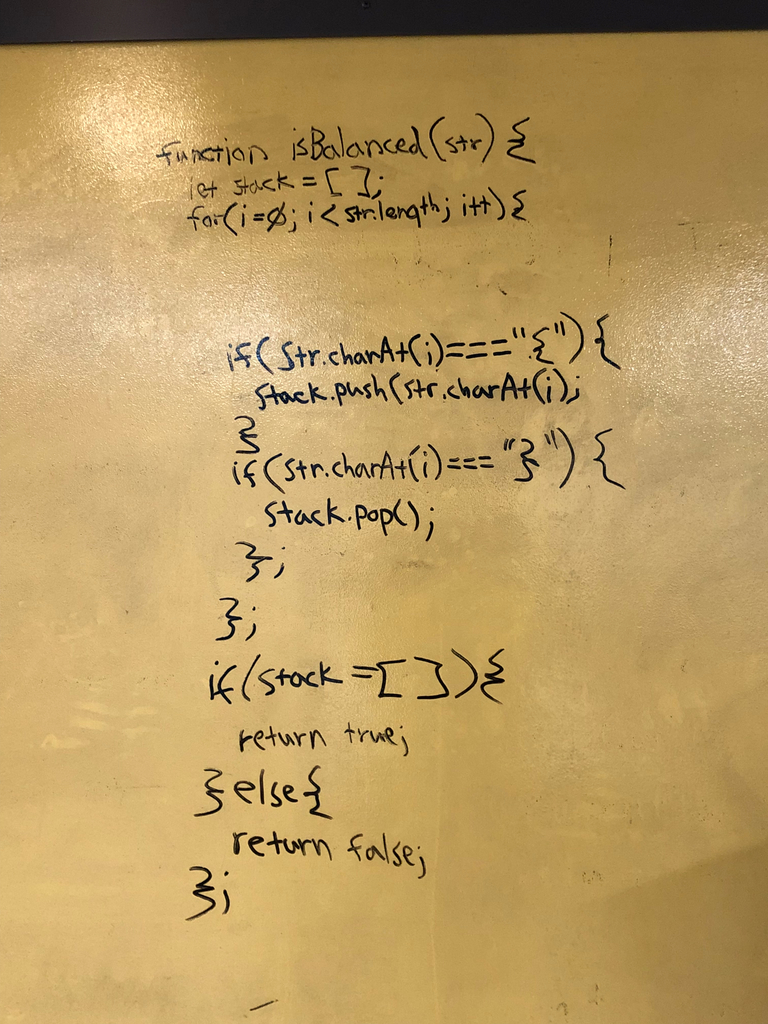 function isBalanced(str) {
let stack = [ ];
for(i=0; i < str.length; i++){
if(str.charAt(i)==="{"){
stack.push(str.charAt(i);
}
if(str.charAt(i)==="}"){
stack.pop();
};
};
if(stack =[ ]){
return true;
}else{
return false;
};